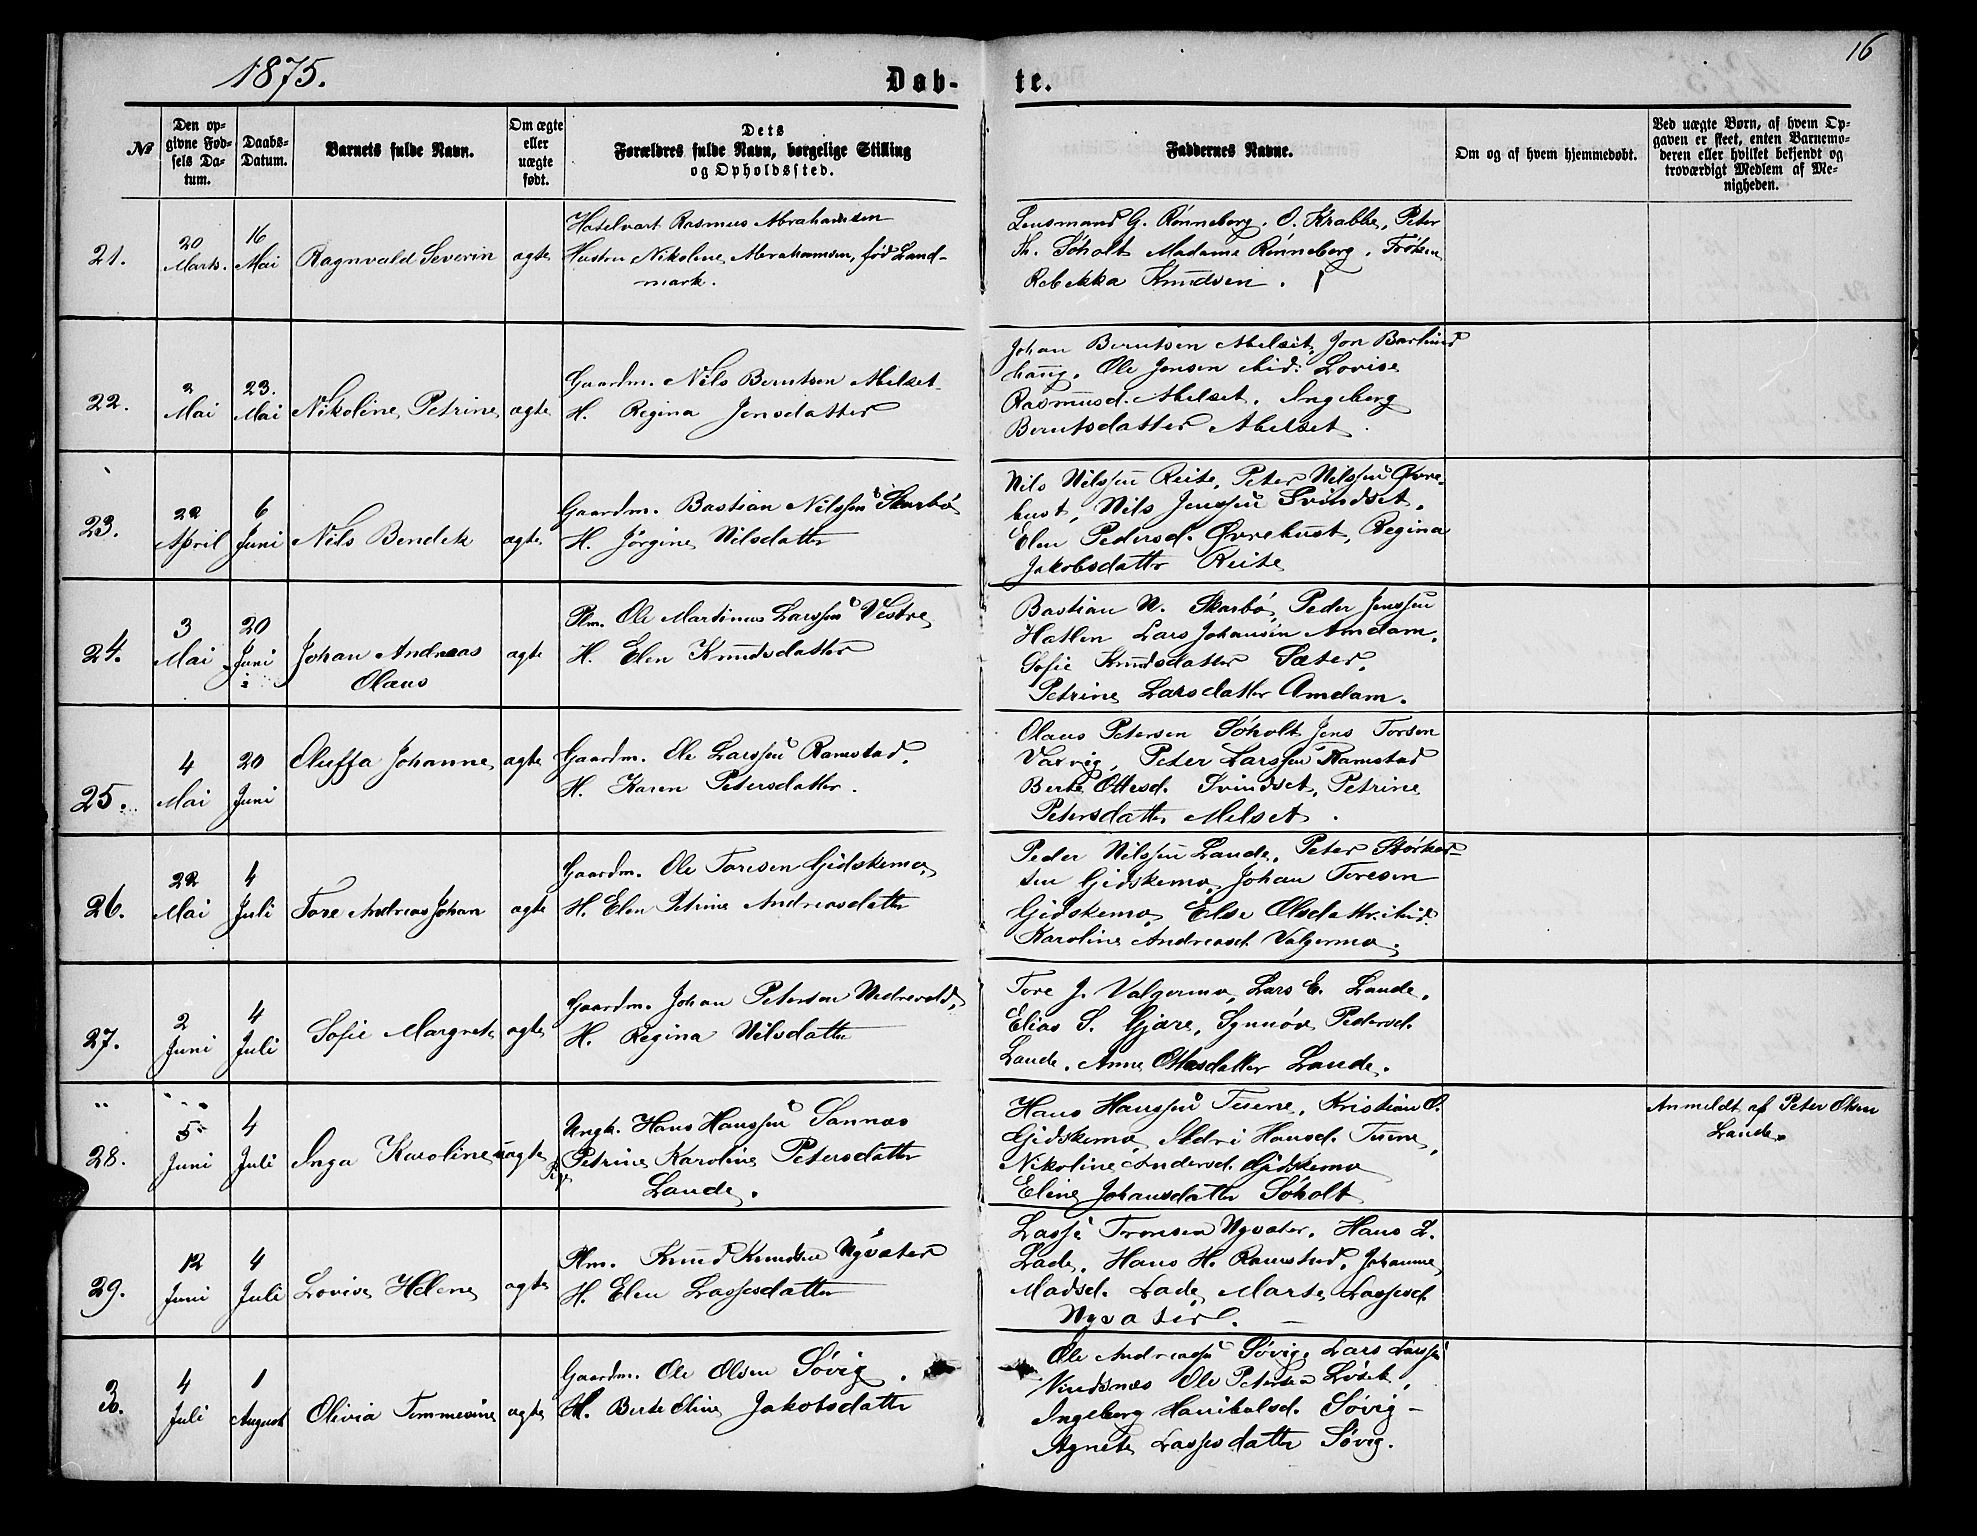 1875.
Døb-
te.
16
No
Den op-
givne Fød-
sels Da-
tum.
Daabs-
Datum.
Barnets fulde Navn.
Om ægte
eller
uægte
født.
Dets
Forældres fulde Navn, borgelige Stilling
og Opholdssted.
Faddernes Navne.
Om og af hvem hjemmedøbt.
Ved uægte Børn, af hvem Op-
gaven er skeet, enten Barnemo-
deren eller hvilket bekjendt og
troværdigt Medlem af Me-
nigheden.
21.
20
Marts.
16
Mai
Ragnvald Severin
ægte
Rasmus Abrahamsen
Hustru Nikoline Abrahamsen, fød Land-
mark.
Lensmand G. Rønneberg. O. Krabbe, Peter
Th. Søholt Madame Rønneberg. Frøken
Rebekka Knudsen.
22.
2
Mai
23.
Mai
Nikoline Petrine
ægte
Gaardm. Nils Berntsen Melset
H. Regina Jensdatter
Johan Berntsen Melset, Jon
haug. Ole Jensen ibid: Lovise
Rasmusd. Melset. Ingeberg
Berntsdatter Melset.
23.
22
April
6
Juni
Nils Bendek
ægte
Gaardm. Bastian Nilssen Skarbø
H. Jørgine Nilsdatter
Nils Nilssen Reite, Peter Nilssen Øvre-
bust, Nils Jenssen Svindset,
Elen Pedersd. Øvrebust, Regina
Jakobsdatter Reite
24.
3
Mai
20
Juni
Johan Andreas
Olaus
ægte
Plm. Ole Martinus Larssen Vestre
H. Elen Knudsdatter
Bastian N. Skarbø, Peder Jenssen
Hatlen Lars Johansen Amdam.
Sofie Knudsdatter Sæter.
Petrine Larsdatter Amdam.
25.
4
Mai
20
Juni
Oluffa Johanne
ægte
Gaardm. Ole Larssen Ramstad.
H. Karen Petersdatter.
Olaus Petersen Søholt Jens Torsen
Vaxvig, Peter Larssen Ramstad
Berte Ottesd. Svindset, Petrine
Petersdatter Melset.
26.
22
Mai
4
Juli
Tore Andreas Johan
ægte
Gaardm. Ole Toresen Gidskemo,
H. Elen Petrine Andreasdatter
Peder Nilssen Lande, Peter Størker-
sen Gidskemo, Johan Toresen
Gidskemo, Else Olsdatter ibid:
Karoline Andreasd. Valgermo.
27.
2
Juni
4
Juli
Sofie Margrete
ægte
Gaardm. Johan Petersen Nedrevold,
H. Regina Nilsdatter
Tore J. Valgermo, Lars E. Lande.
Elias S. Gjære, Synnøve Pedersd.
Lande. Anne Ottesdatter Lande.
28.
5
Juni
4
Juli
Inga Karoline
uægte
Ungk. Hans Hanssen Sannæs
Pige Petrine Karoline Petersdatter
Lande.
Hans Hanssen Tusene, Kristian O.
Gidskemo, Sedri Hansd. Tusene,
Nikoline Andersd. Gidskemo
Eline Johansdatter Søholt
Anmeldt af Peter Olsen
Lande.
29.
12
Juni
4
Juli
Lovise Helene
ægte
Plm. Knud Knudsen Nysæter
H. Elen Lassesdatter
Lasse Tronsen Nysæter. Hans L.
Lade. Hans H. Ramstad. Johanne
Madsd. Lade Marte Lassesd.
Nysæter.
30.
4
Juli
1
August
Olivia Tommesine
ægte
Gaardm. Ole Olsen Søvig.
H. Berte Eline Jakobsdatter
Ole Andreassen Søvig. Lars Larssen
Vindsnæs Ole Petersen Løset.
Ingeberg Hanibalsd. Søvig -
Agnete Lassesdatter Søvig.